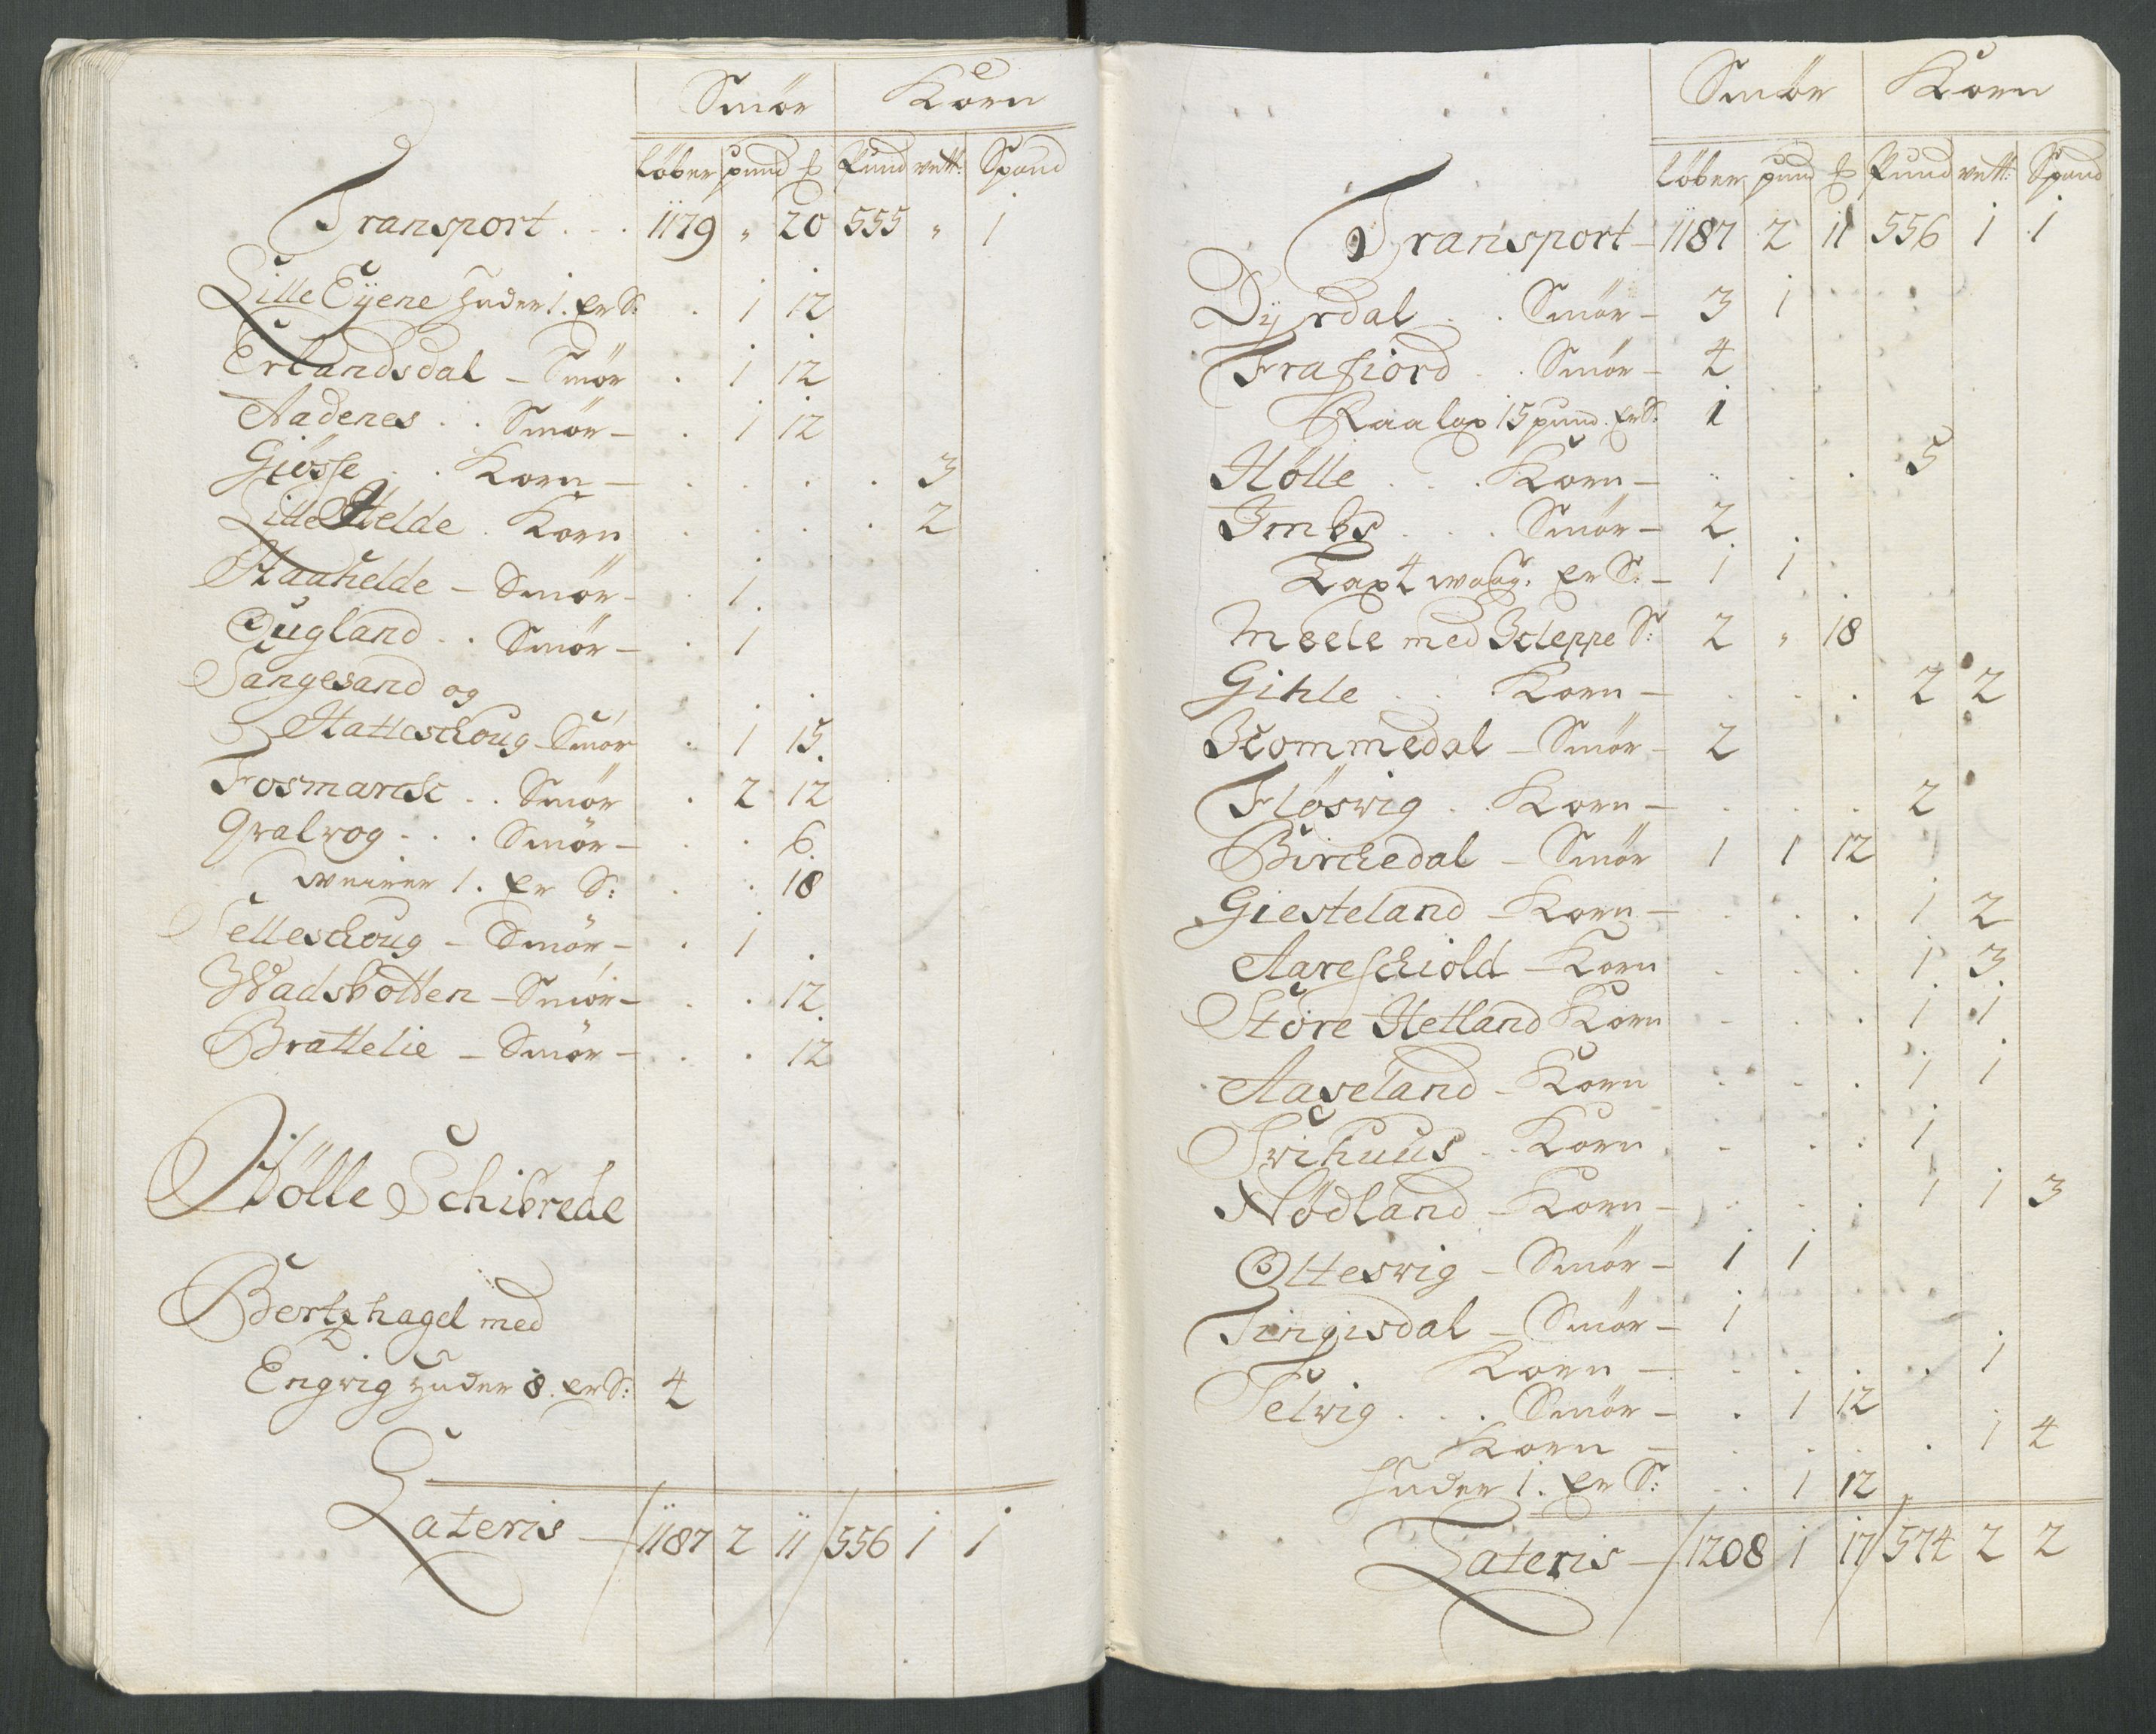 Smör Korn
löber pund ℔ Pund vett: Spand
Transport . . . 1179 „ 20 555 „ 1
Lille Eÿene Huder 1. er S: . 1 12
Erlandsdal – Smör . 1 12
Aadenes . . Smör – . 1 12
Giösse . . Korn – . . . . 3
Lille Helde . Korn . . . . 2
Haahelde – Smör – . 1
Ougland . . Smör – . 1
Tangesand og
Hatleschoug – Smör . 1 15
Fosmarch . . Smör . 2 12
Qvalvog . . . Smör – . . 6
1. er S: . . 18
Telleschoug – Smör – . 1
Wadsbotten – Smör – . . 12
Brattelie – Smör – . . 12
Hölle Schibrede
Bertzhagel med
Engvig Huder 8. er S: 4
Lateris – 1187 2 11 556 1 1
Smör Korn
löber pund ℔ Pund vett: Spand
Transport – 1187 2 11 556 1 1
Dÿrdal . . Smör – 3 1
Frafiord . . Smör – 4
Raa lax 15 pund. er S: 1
Hölle . . . Korn – . . . 5
Imbs . . . Smör – 2
Lax 4 waag: er S: – 1 1
Meele med Scleppe S: 2 „ 18
Gihle . . Korn – . . . 2 2
Commedal – Smör – 2
Flösvig . . Korn – . . . 2
Birchedal – Smör 1 1 12
Giesteland – Korn – . . . 1 2
Aareschiold – Korn . . . 1 3
Store Hetland Korn . . . 1 1
Aaseland – Korn . . . 1 1
Tvihuus . . Korn . . . 1
Nödland – Korn – . . . 1 1 3
Ottesvig – Smör – 1 1
Tingisdal – Smör – 1
Korn – . . . . 1
Telvig . . . Smör – . 1 12
Korn – . . . . 1 4
Huder 1. er S: . 1 12
Lateris – 1208 1 17 574 2 2